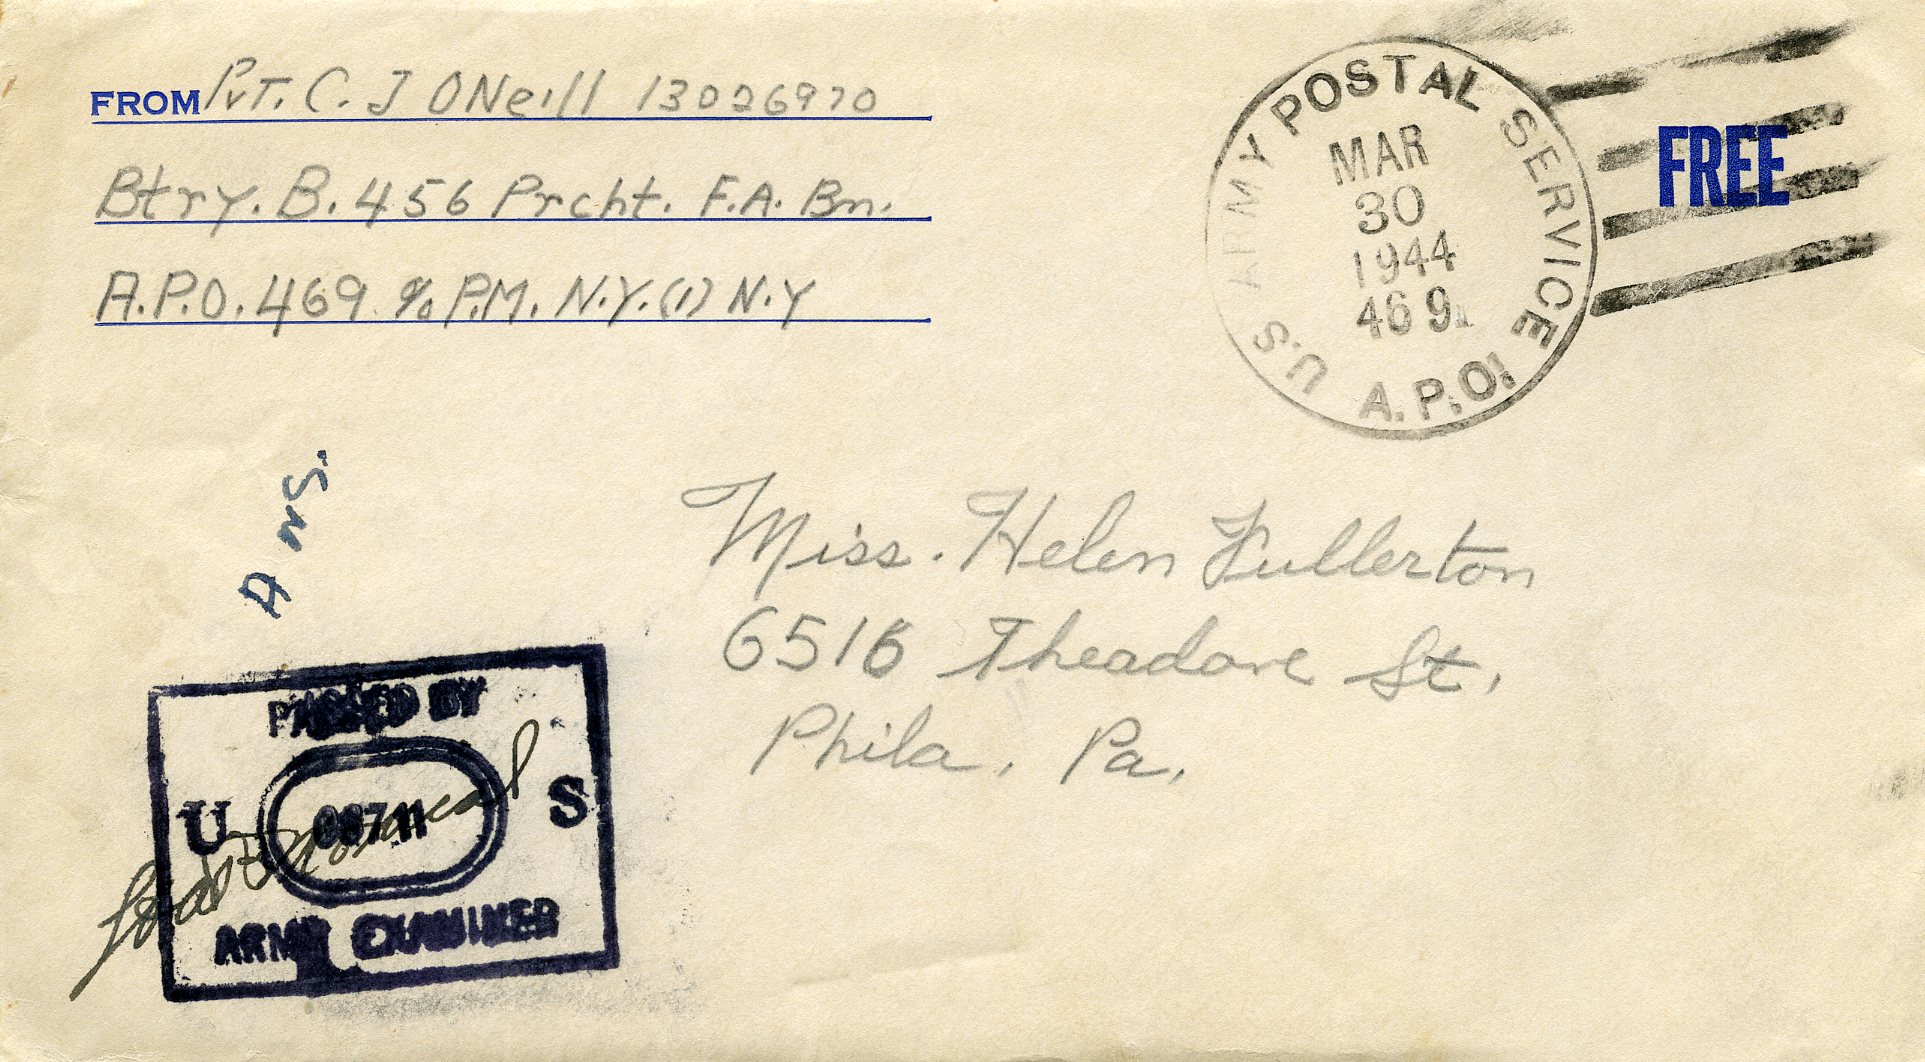 FROM Pvt. C. J ONeill 13026970
Btry. B. 456 Prcht. F.A. Bn.
A.P.O. 469 c/o P.M. N.Y. (1) N.Y
U.S. ARMY POSTAL SERVICE
A.P.O.
MAR
30
1944
469
FREE
Ans.
Miss. Helen Fullerton
6516 Theadore St.
Phila. Pa.
PASSED BY
U S
ARMY EXAMINER